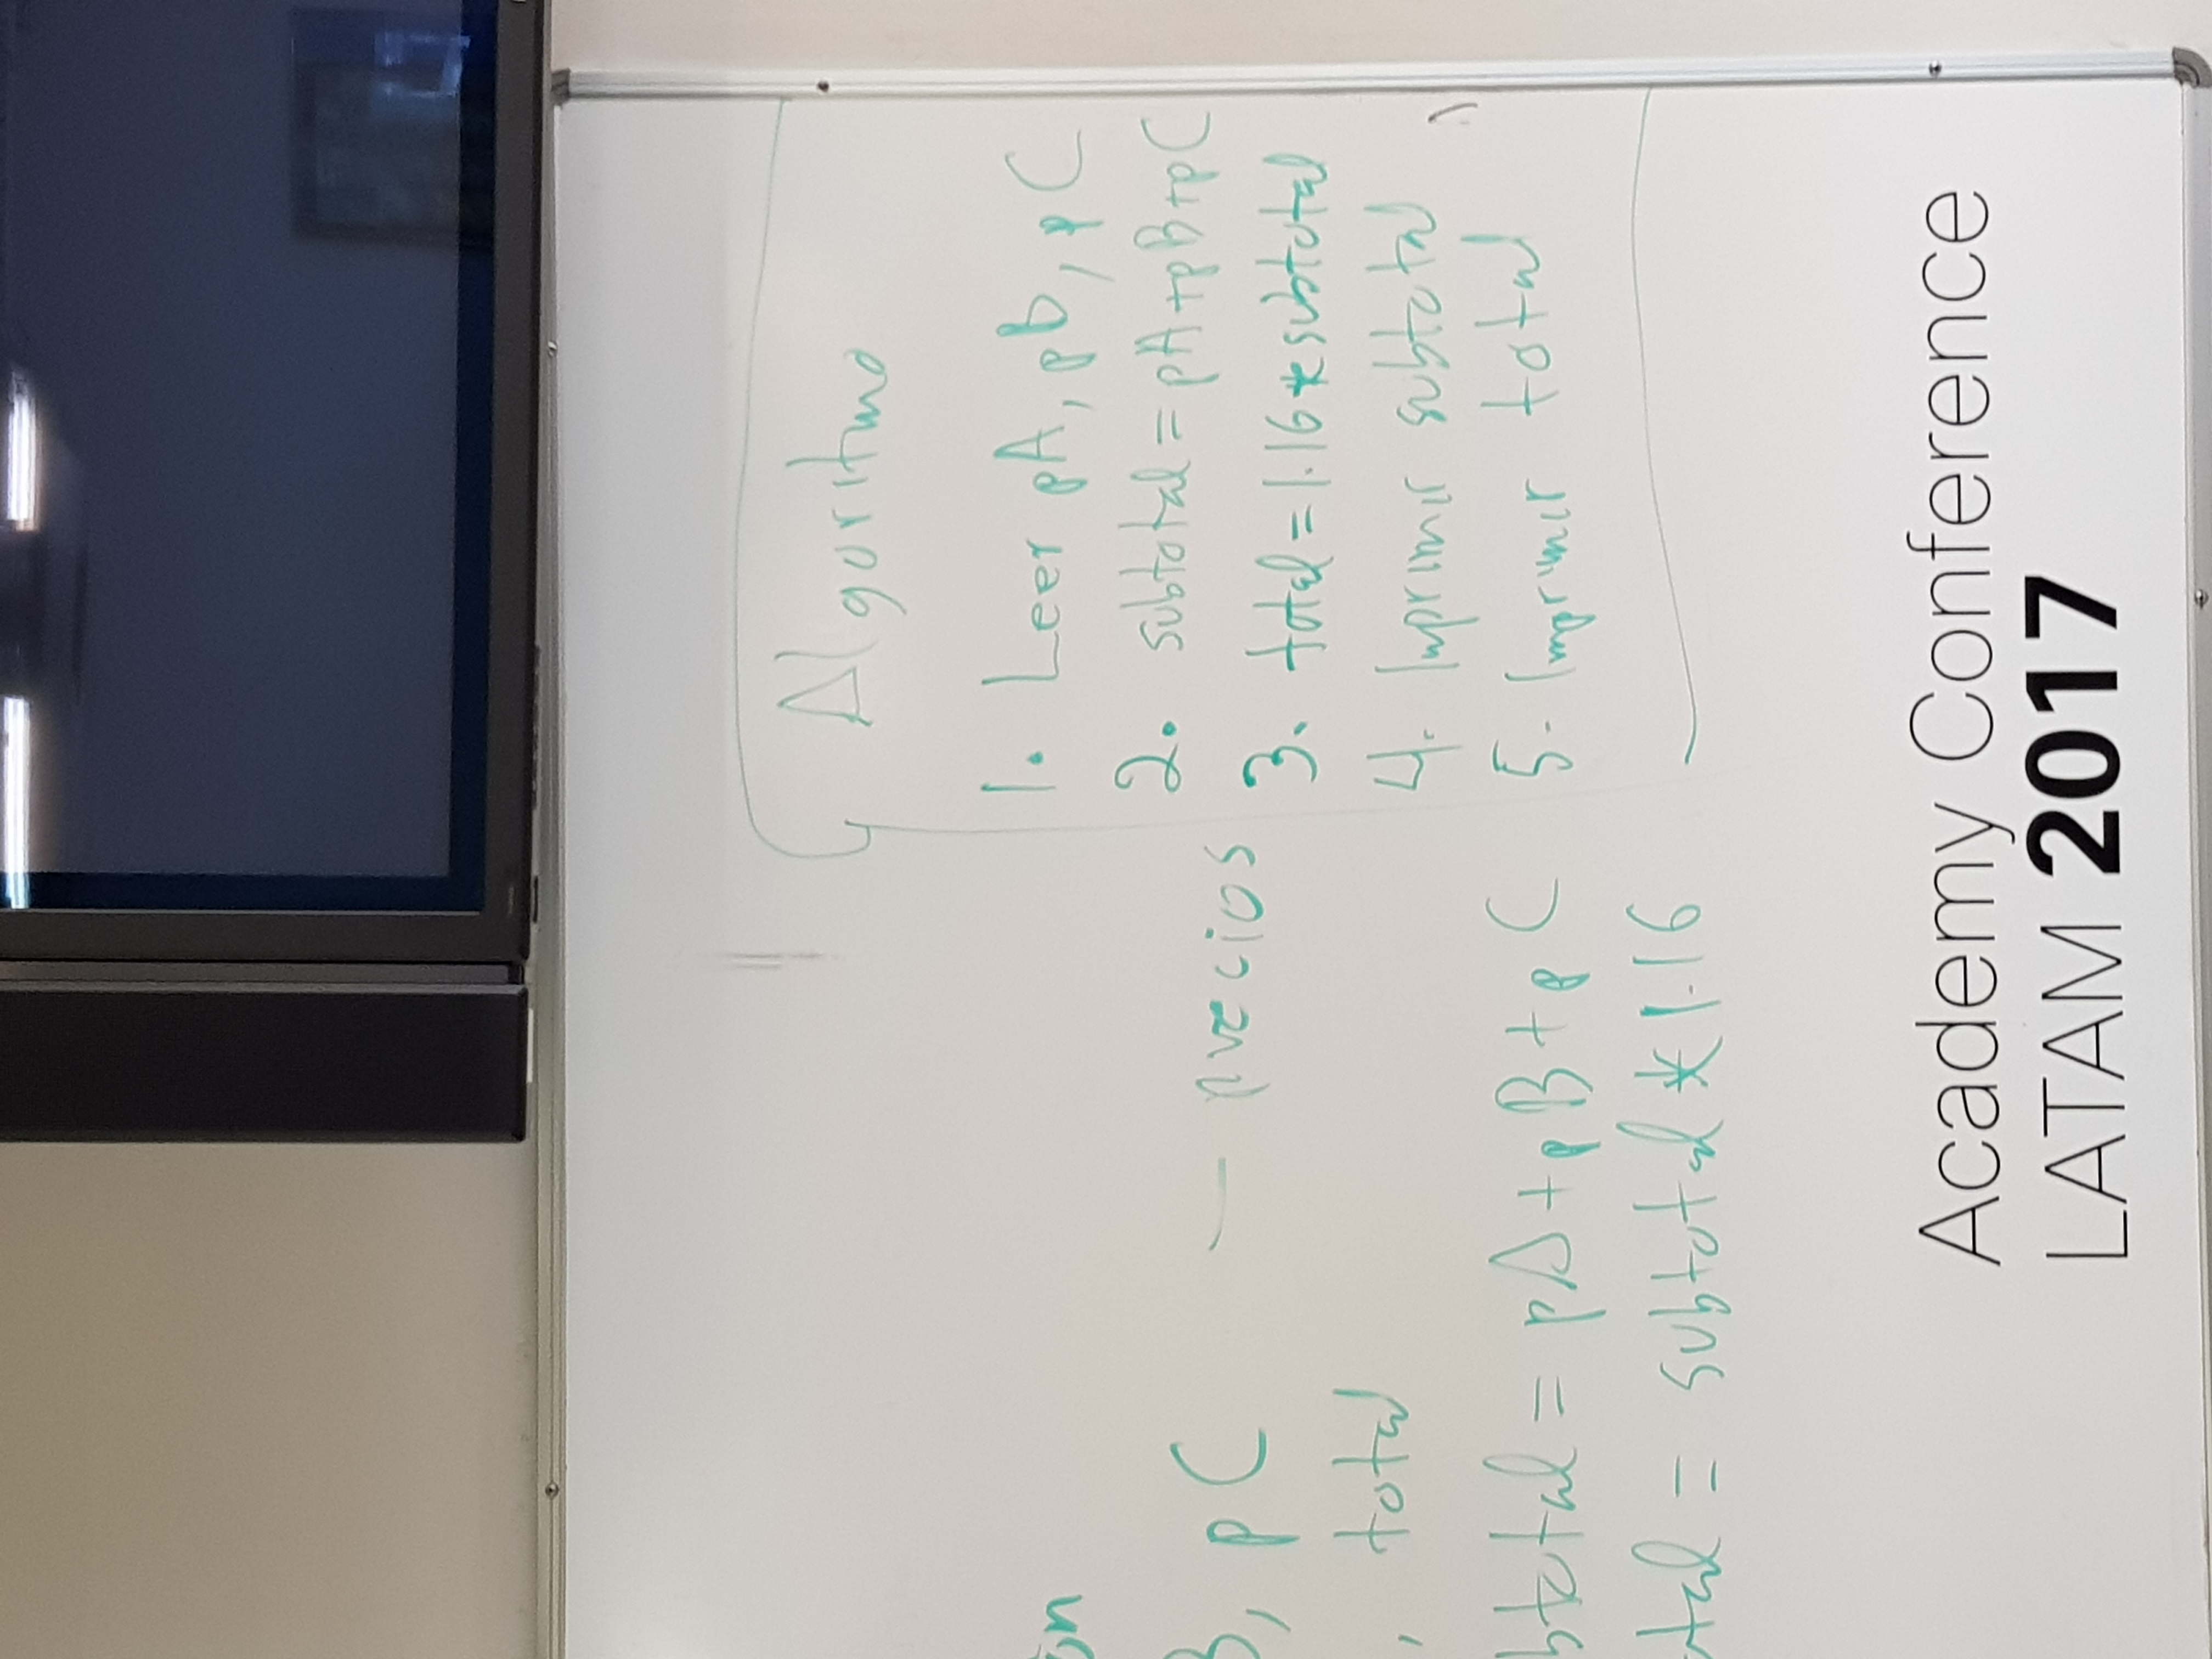 ón
B, pC — precios
, total
btotal = pA+pB+pC
otal = subtotal * 1.16
Algoritmo
1. Leer pA, pB, pC
2. subtotal = pA+pB+pC
3. total = 1.16 * subtotal
4. Imprimir subtotal
5. Imprimir total
Academy Conference
LATAM 2017